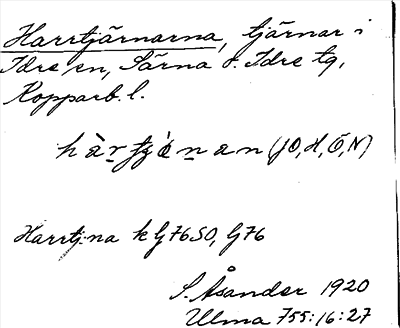 Harrtjärnarna, tjärnar i
Idre sn, Särna o. Idre tg,
Kopparb. l.
(JO, H, Ö, N)
Harrtj:na k G76SO, G76
S. Åsander 1920
Ulma 755:16:27